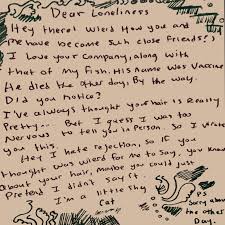 Dear Loneliness
Hey there! Wierd How you and
me have become such close Friends!)
I love your company, along with
that of my Fish. His name was Vaccine
He died the other day, By the way.
Did you notice?
I've always thought your hair is Really
Pretty.. But I guess I was too
Nervous to tell you in Person. So I wrote
you this.
Hey I hate rejection, so if you
thought was wierd for me to say, you know
about your hair, maybe you could just
Pretend I didn't say it.
I'm a little shy
Cat
P.S
Sorry about
the other
Day.